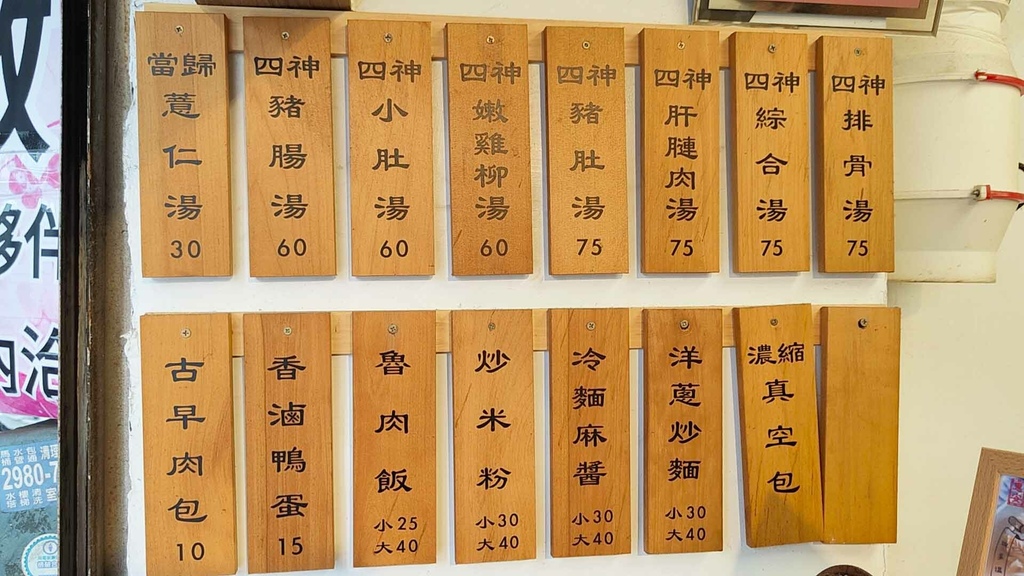 當歸薏仁湯
30
四神豬腸湯
60
四神小肚湯
60
四神嫩雞柳湯
60
四神豬肚湯
75
四神肝膢肉湯
75
四神綜合湯
75
四神排骨湯
75
古早肉包
10
香滷鴨蛋
15
魯肉飯
小25
大40
炒米粉
小30
大40
冷麵麻醬
小30
大40
洋蔥炒麵
小30
大40
濃縮真空包
夥伴
內洽
2980-7